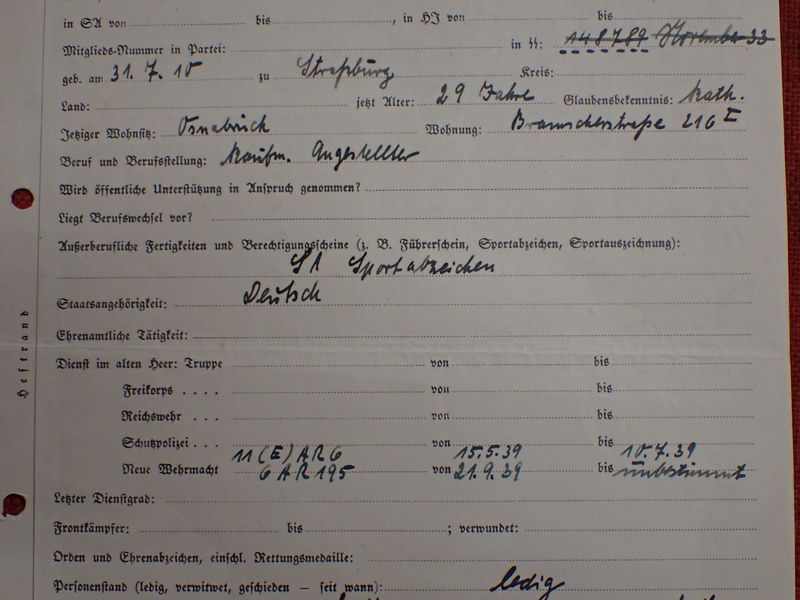 in SA von bis , in HJ von bis
Mitglieds-Nummer in Partei: in SS: 148789 November 33
geb. am 31.7.10 zu Straßburg Kreis:
Land: jetzt Alter: 29 Jahre Glaubensbekenntnis: Kath.
Jetziger Wohnsitz: Osnabrück Wohnung: Bramscherstraße 216 I
Beruf und Berufsstellung: Kaufm. Angestellter
Wird öffentliche Unterstützung in Anspruch genommen?
Liegt Berufswechsel vor?
Außerberufliche Fertigkeiten und Berechtigungsscheine (z. B. Führerschein, Sportabzeichen, Sportauszeichnung):
SA Sportabzeichen
Staatsangehörigkeit: Deutsch
Ehrenamtliche Tätigkeit:
Heftrand
Dienst im alten Heer: Truppe von bis
Freikorps . . . . von bis
Reichswehr . . . von bis
Schutzpolizei . . . von bis
11 (E) AR 6 15.5.39 10.7.39
Neue Wehrmacht 6 AR 195 von 21.9.39 bis unbestimmt
Letzter Dienstgrad:
Frontkämpfer: bis ; verwundet:
Orden und Ehrenabzeichen, einschl. Rettungsmedaille:
Personenstand (ledig, verwitwet, geschieden – seit wann): ledig